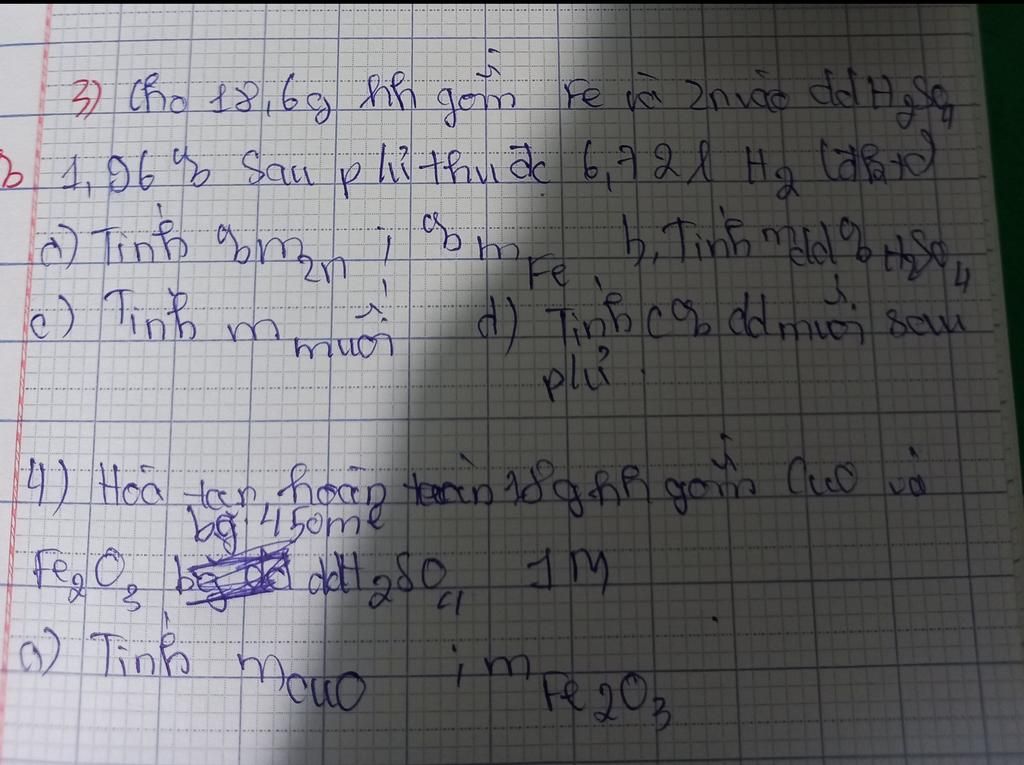 3) Cho 18,6g hh gồm Fe và Zn vào dd H2SO4
1,96% sau pứ thu đc 6,72l H2 (đktc)
a) Tính %mZn; %mFe b, Tính mdd H2SO4
c) Tính mmuối d) Tính C% dd muối sau
pứ.
4) Hoà tan hoàn toàn 18g hh gồm CuO và
bg 450ml
Fe2O3 ddH2SO4 1M
a) Tính mCuO ; mFe2O3